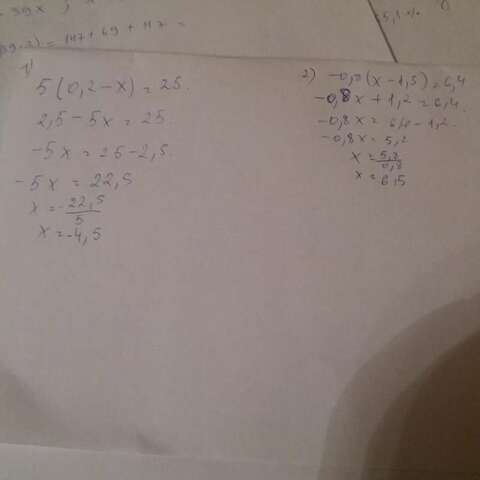 = 147 + 69 + 117 =
1)
5 (0,2 - x) = 25.
2,5 - 5x = 25.
-5x = 25 - 2,5.
-5x = 22,5
x = -22,5/5
x = -4,5
2) -0,8(x - 1,5) = 6,4
-0,8x + 1,2 = 6,4.
-0,8x = 6,4 - 1,2.
-0,8x = 5,2
x = 5,2/0,8
x = 6,5